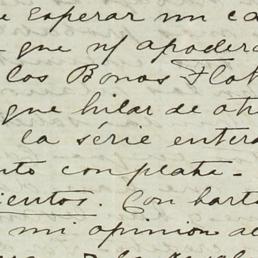 e esperar un ca
que n/ apodera
los Bonos Flot
que hilar de otr
la série entera
nto con plate-
ientos. Con harto
mi opinion de